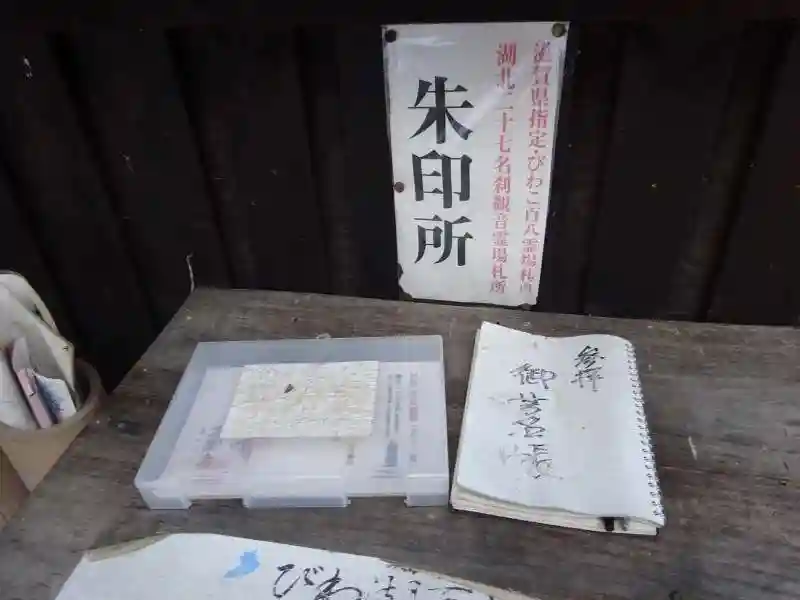 滋賀県指定・びわこ百八霊場札所
湖北二十七名刹観音霊場札所
朱印所
参拝
御芳名帳
びわ湖